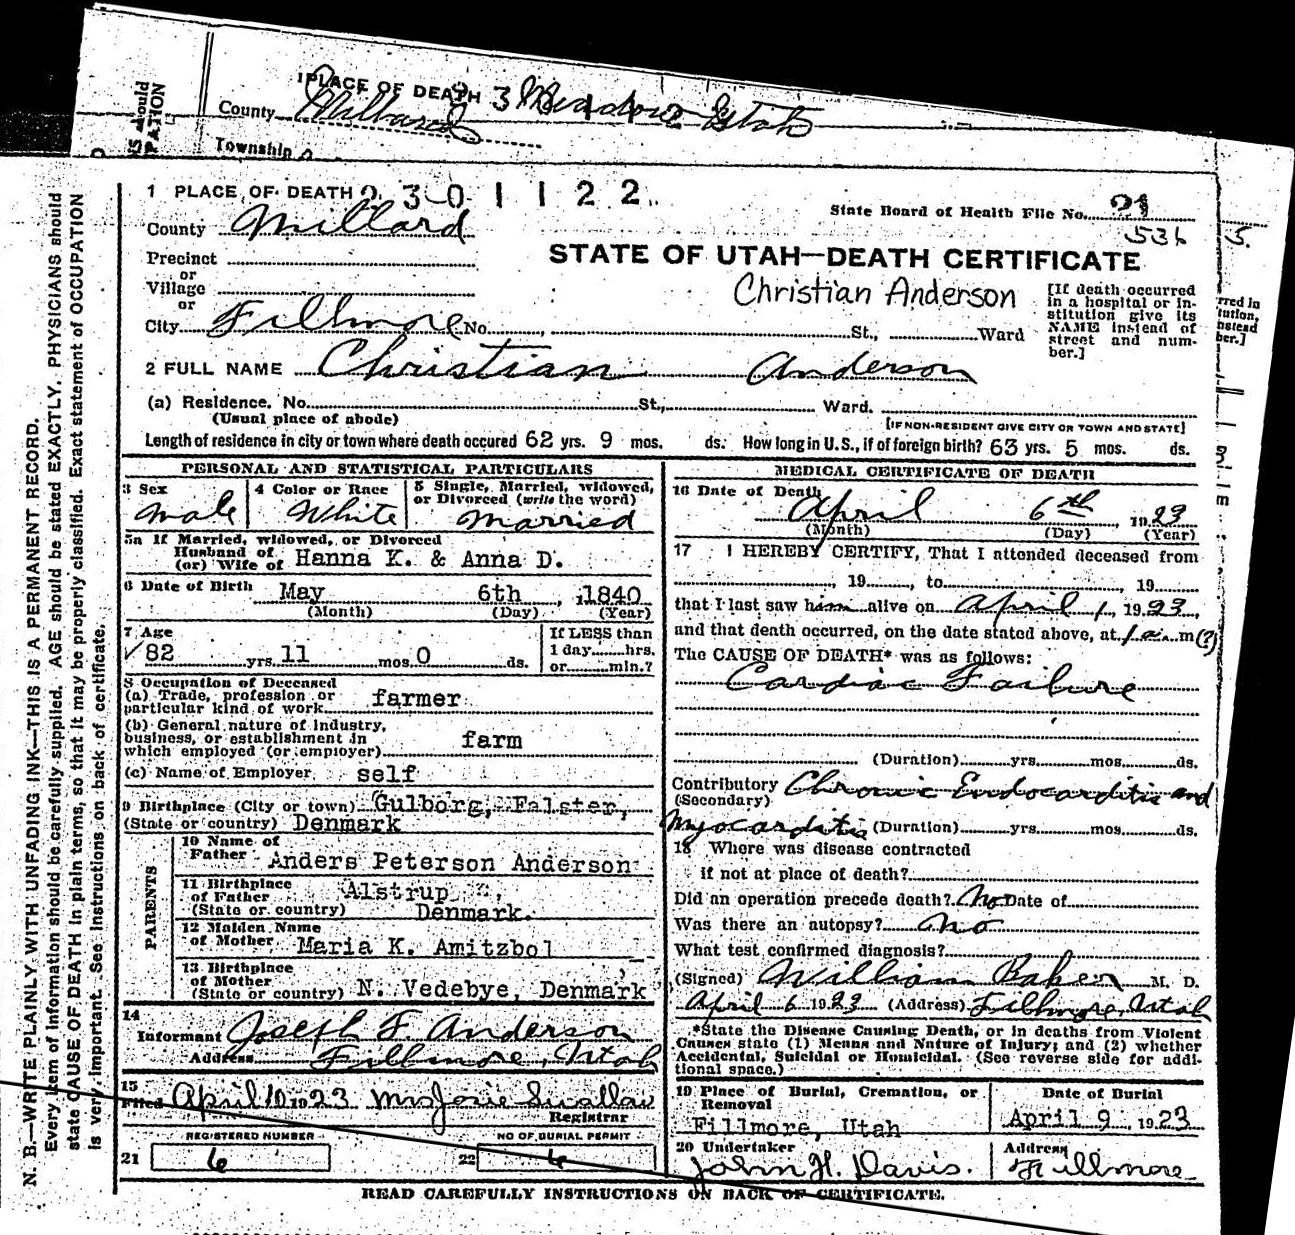 1 PLACE OF DEATH 3 Meadow Utah
County Millard
Township
1 PLACE OF DEATH 2 3 0 1 1 2 2
State Board of Health File No. 21
536
County Millard
STATE OF UTAH—DEATH CERTIFICATE
Precinct
or
Village
or
Christian Anderson
[If death occurred in a hospital or institution give its NAME instead of street and number.]
City Fillmore No. St., Ward
2 FULL NAME Christian Anderson
(a) Residence. No. St., Ward.
(Usual place of abode) [IF NON-RESIDENT GIVE CITY OR TOWN AND STATE]
Length of residence in city or town where death occured 62 yrs. 9 mos. ds. How long in U.S., if of foreign birth? 63 yrs. 5 mos. ds.
PERSONAL AND STATISTICAL PARTICULARS
3 Sex
Male
4 Color or Race
White
5 Single, Married, widowed,
or Divorced (write the word)
Married
5a If Married, widowed, or Divorced
Husband of
(or) Wife of Hanna K. & Anna D.
6 Date of Birth May 6th, 1840
(Month) (Day) (Year)
7 Age
82 yrs. 11 mos. 0 ds.
If LESS than
1 day hrs.
or min.?
8 Occupation of Deceased
(a) Trade, profession or
particular kind of work farmer
(b) General nature of industry,
business, or establishment in
which employed (or employer) farm
(c) Name of Employer self
9 Birthplace (City or town) Gulborg, Falster,
(State or country) Denmark
PARENTS
10 Name of
Father Anders Peterson Anderson
11 Birthplace
of Father Alstrup
(State or country) Denmark.
12 Maiden Name
of Mother Maria K. Amitzbol
13 Birthplace
of Mother
(State or country) N. Vedebye, Denmark
14
Informant Joseph F. Anderson
Address Fillmore, Utah
15
Filed April 10 1923 Mrs Josie Swallow
Registrar
REGISTERED NUMBER
21 6
NO OF BURIAL PERMIT
22 6
MEDICAL CERTIFICATE OF DEATH
16 Date of Death
April 6th, 1923
(Month) (Day) (Year)
17 I HEREBY CERTIFY, That I attended deceased from
, 19 , to , 19
that I last saw him alive on April 1, 1923,
and that death occurred, on the date stated above, at 1 a. m (?)
The CAUSE OF DEATH* was as follows:
Cardiac Failure
(Duration) yrs. mos. ds.
Contributory Chronic Endocarditis and
(Secondary)
Myocarditis (Duration) yrs. mos. ds.
18 Where was disease contracted
if not at place of death?
Did an operation precede death? No Date of
Was there an autopsy? no
What test confirmed diagnosis?
(Signed) William Baker M. D.
April 6 1923 (Address) Fillmore, Utah
*State the Disease Causing Death, or in deaths from Violent
Causes state (1) Means and Nature of Injury; and (2) whether
Accidental, Suicidal or Homicidal. (See reverse side for additional space.)
19 Place of Burial, Cremation, or
Removal
Fillmore, Utah
Date of Burial
April 9, 1923
20 Undertaker
John H. Davis.
Address
Fillmore
READ CAREFULLY INSTRUCTIONS ON BACK OF CERTIFICATE.
N. B.—WRITE PLAINLY WITH UNFADING INK—THIS IS A PERMANENT RECORD.
Every item of information should be carefully supplied. AGE should be stated EXACTLY. PHYSICIANS should
state CAUSE OF DEATH in plain terms, so that it may be properly classified. Exact statement of OCCUPATION
is very important. See instructions on back of certificate.